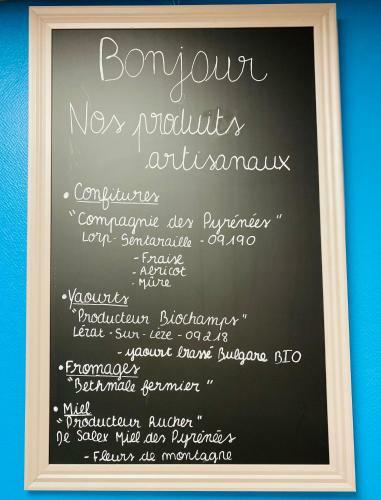 Bonjour
Nos produits
artisanaux
• Confitures
"Compagnie des Pyrénées"
Lorp-Sentaraille-09190
- Fraise
- Abricot
- Mûre
• Yaourts
"Producteur Biochamps"
Lérat-Sur-Lèze-09218
- yaourt brassé Bulgare BIO
• Fromages
"Bethmale fermier"
• Miel
"Producteur Rucher"
De Salex Miel des Pyrénées
- Fleurs de montagne